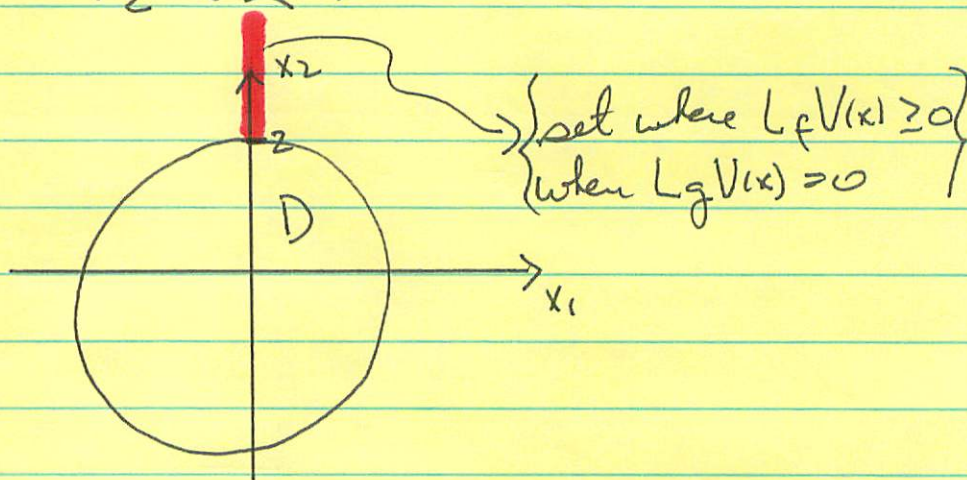 x2
2
D
x1
{set where LfV(x) ≥0}
{when LgV(x) =0}